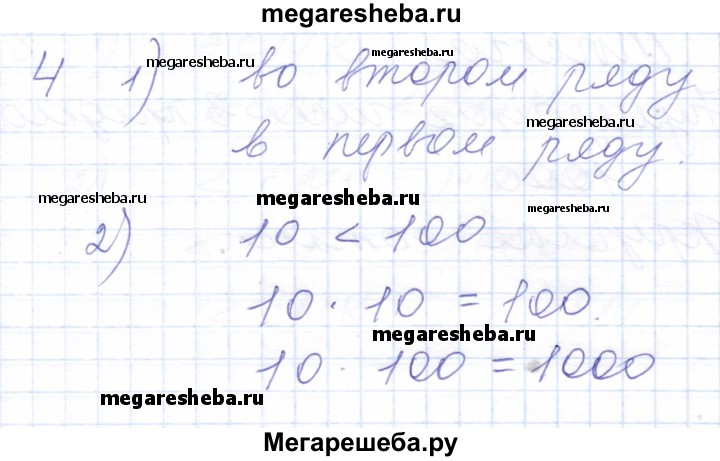 megaresheba.ru
4 1) во втором ряду
megaresheba.ru
megaresheba.ru
megaresheba.ru
в первом ряду.
megaresheba.ru
megaresheba.ru
megaresheba.ru
2) 10 < 100
10 · 10 = 100.
megaresheba.ru
10 · 100 = 1000
megaresheba.ru
Мегарешеба.ру